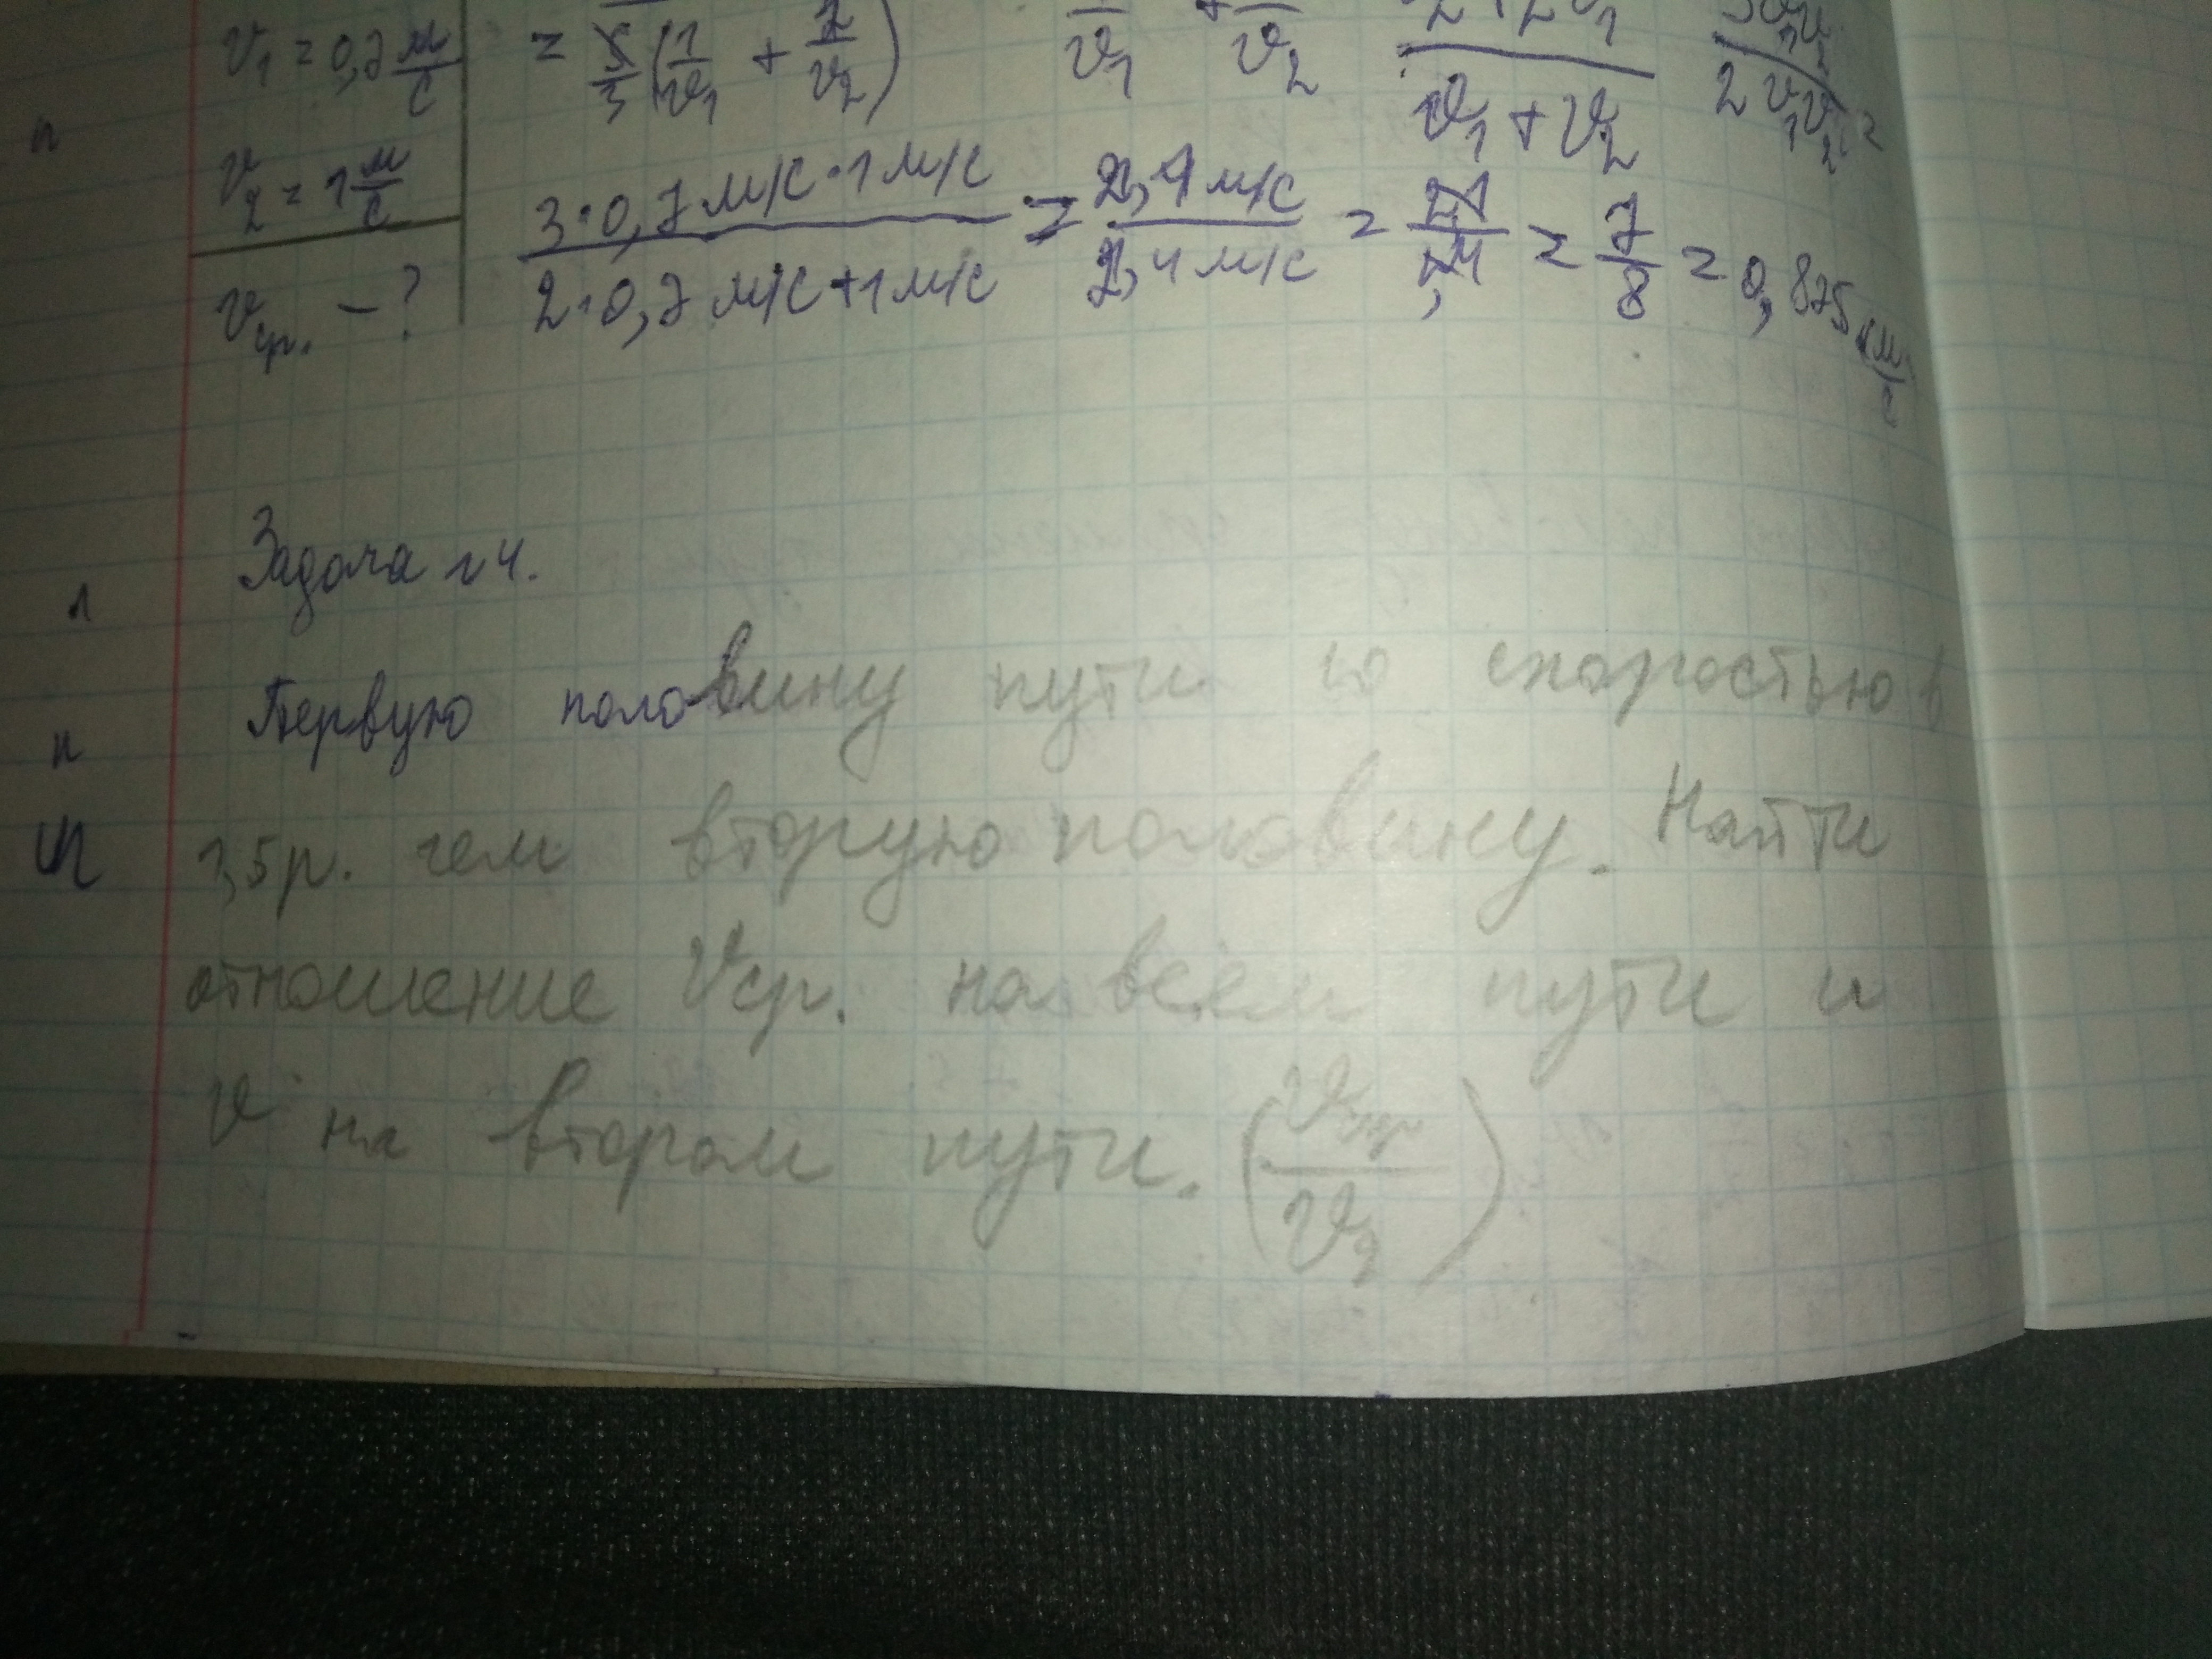 v₁ = 0,7 м/с = (1/v₁ + 2/v₂) v₁ v₂ v₁ + v₂ 2 v₁v₂
v₂ = 1 м/с 3·0,7 м/с·1 м/с / 2·0,7 м/с+1 м/с = 2,1 м/с / 2,4 м/с = 21/24 = 7/8 = 0,875 м/с
vср. – ?
Задача №4.
Первую половину пути со скоростью в
1,5 р. чем вторую половину. Найти
отношение Vср. на всем пути и
v на втором пути. (vср/v₂)